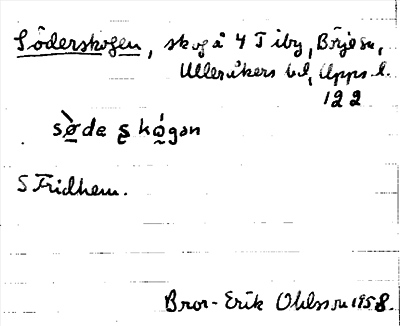 Söderskogen, skog å 4 Tiby, Börje sn,
Ulleråkers hd, Upps. l.
122
sø̀de s̨kógən
S Fridhem.
Bror-Erik Ohlsson 1958.